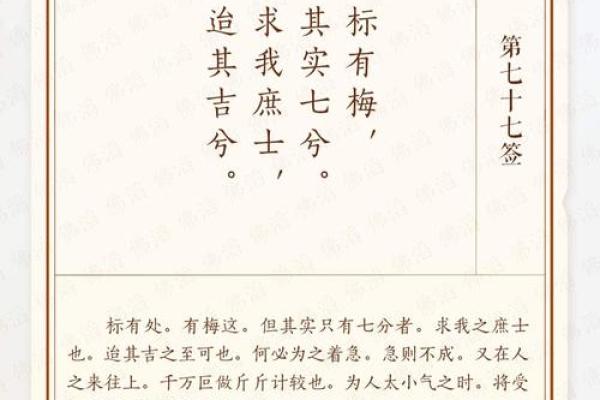 第七十七签
标有梅，
其实七兮。
求我庶士，
迨其吉兮。
标有处。有梅这。但其实只有七分者。求我之庶士
也。迨其吉之至可也。何必为之着急。急则不成。又在人
之来往上。千万巨做斤斤计较也。为人太小气之时。将受